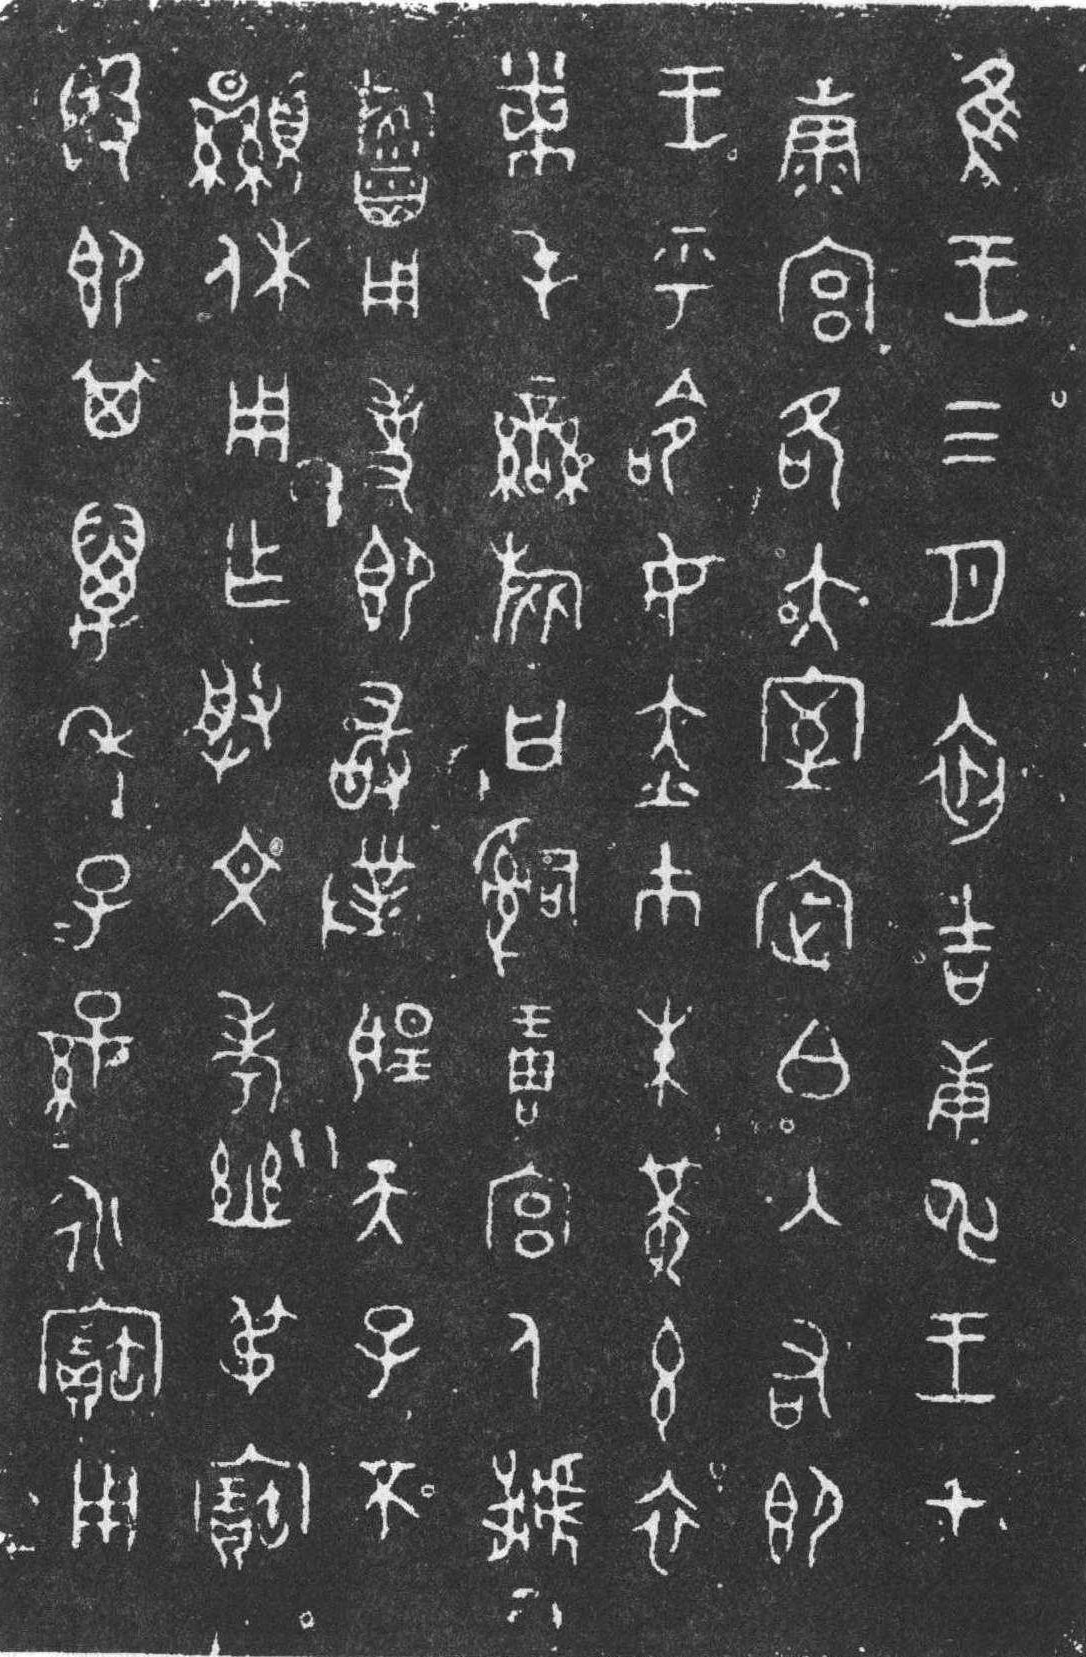 隹王三月初吉庚申王才
康宮各大室定白入右即
王乎命女赤市朱黃玄衣
黹屯䜌旂曰𤔲琱宮人虢
用事即敢對揚天子不
顯休用乍朕文考幽弔寶
簋即其萬年子=孫=永寶用